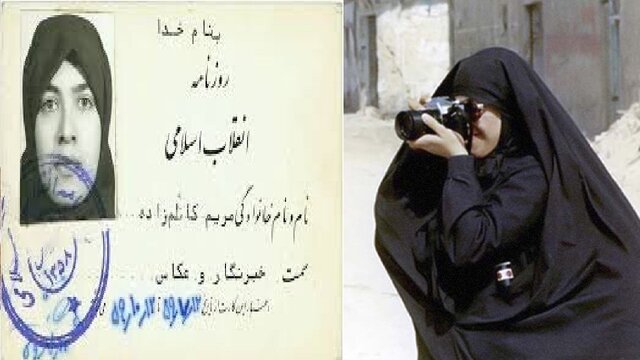 بنام خدا
روزنامه
انقلاب اسلامی
نام و نام خانوادگی مریم کاظم‌زاده ...
سمت خبرنگار و عکاس ....